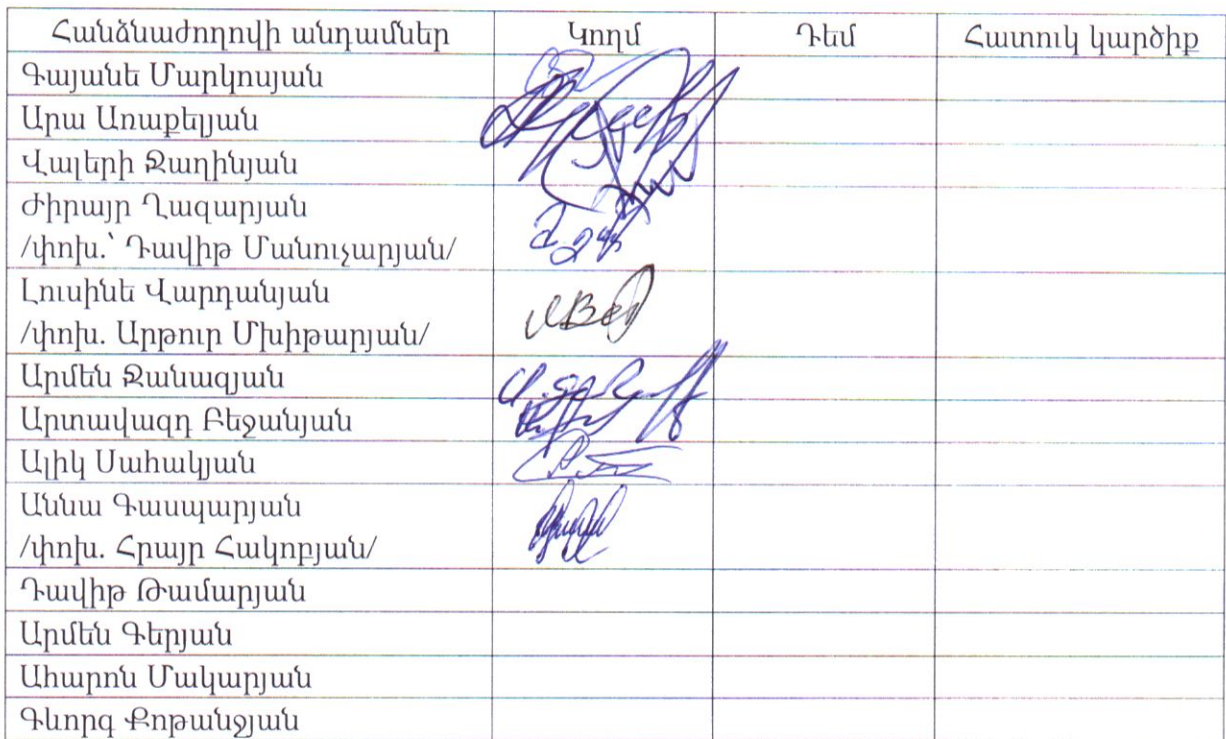 Հանձնաժողովի անդամներ Կողմ Դեմ Հատուկ կարծիք
Գայանե Մարկոսյան
Արա Առաքելյան
Վալերի Ջաղինյան
Ժիրայր Ղազարյան
/փոխ.՝ Դավիթ Մանուչարյան/
Լուսինե Վարդանյան
/փոխ. Արթուր Մխիթարյան/
Արմեն Ջանազյան
Արտավազդ Բեջանյան
Ալիկ Սահակյան
Աննա Գասպարյան
/փոխ. Հրայր Հակոբյան/
Դավիթ Թամարյան
Արմեն Գերյան
Ահարոն Մակարյան
Գևորգ Քոթանջյան